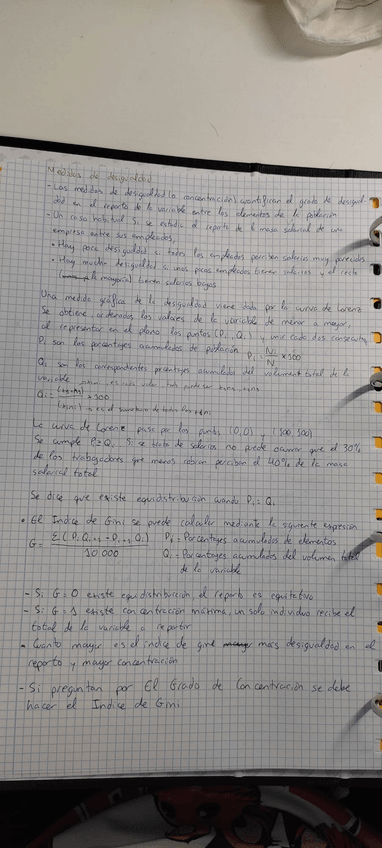 Medidas de desigualdad
- Las medidas de desigualdad (o concentración) cuantifican el grado de desigual-
dad en el reparto de la variable entre los elementos de la población
- Un caso habitual: Si se estudia el reparto de la masa salarial de una
empresa entre sus empleados,
• Hay poca desigualdad si todos los empleados perciben salarios muy parecidos
• Hay mucha desigualdad si unos pocos empleados tienen salarios y el resto
(la mayoria) tienen salarios bajos
Una medida gráfica de la desigualdad viene dada por la curva de Lorenz
Se obtiene ordenados los valores de la variable de menor a mayor,
al representar en el plano los puntos (Pi, Qi) y unir cada dos consecutivos
Pi son los porcentajes acumulados de población Pi = Ni/N × 100
Qi son los correspondientes porcentajes acumulados del volumen total de la
variable
Qi = × 100
La curva de Lorenz pasa por los puntos (0,0) y (100,100)
Se cumple Pi ≥ Qi. Si se trata de salarios no puede ocurrir que el 30%
de los trabajadores que menos cobran perciban el 40% de la masa
salarial total
Se dice que existe equidistribución cuando Pi = Qi
• El Indice de Gini se puede calcular mediante la siguiente expresión
G = Σ(Pi Qi+1 - Pi+1 Qi) / 10.000 Pi = Porcentajes acumulados de elementos
Qi = Porcentajes acumulados del volumen total
de la variable
- Si G = 0 existe equidistribución, el reparto es equitativo
- Si G = 1 existe concentración máxima, un solo individuo recibe el
total de la variable a repartir
• Cuanto mayor es el indice de gini mas desigualdad en el
reparto y mayor concentración
- Si preguntan por El Grado de Concentración se debe
hacer el Indice de Gini